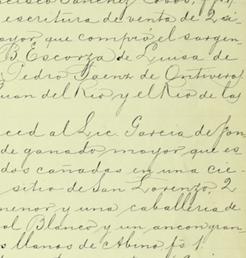 cisco Sanchez Cobos, f
escritura de venta de 2 si
ayor, que compró el sargen
B. Escorza de Luisa de
Pedro Saenz de Ontiveros
uan del Rio y el Rio de las
ced al Lic. Garcia de Jon
de ganado mayor, que es
dos cañadas en una cie
sitio de San Lorenzo, 2
menor y una caballeria de
ol Blanco y un ancon gran
s llanos de Abino fs 1